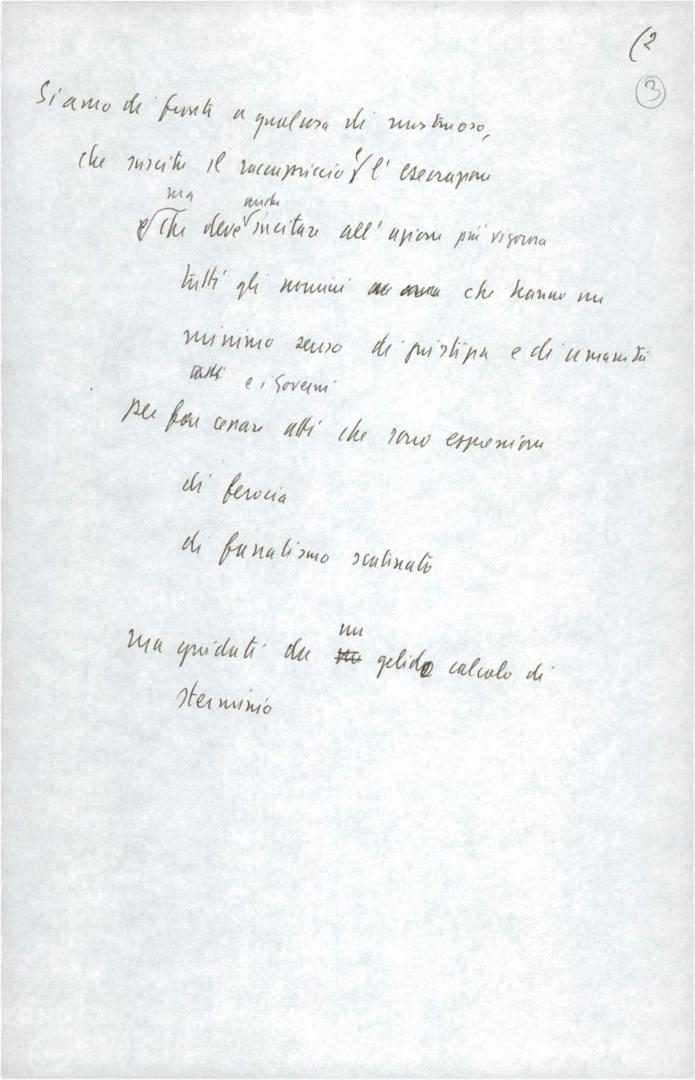 (2
3
Siamo di fronte a qualcosa di mostruoso,
che suscita il raccapriccio e l'esecrazione
ma anche
e che deve incitare all'azione più vigorosa
tutti gli uomini che hanno un
minimo senso di giustizia e di umanità
tutti e i governi
per far cessare atti che sono espressione
di ferocia
di fanatismo scatenato
un
ma guidati da un gelido calcolo di
sterminio